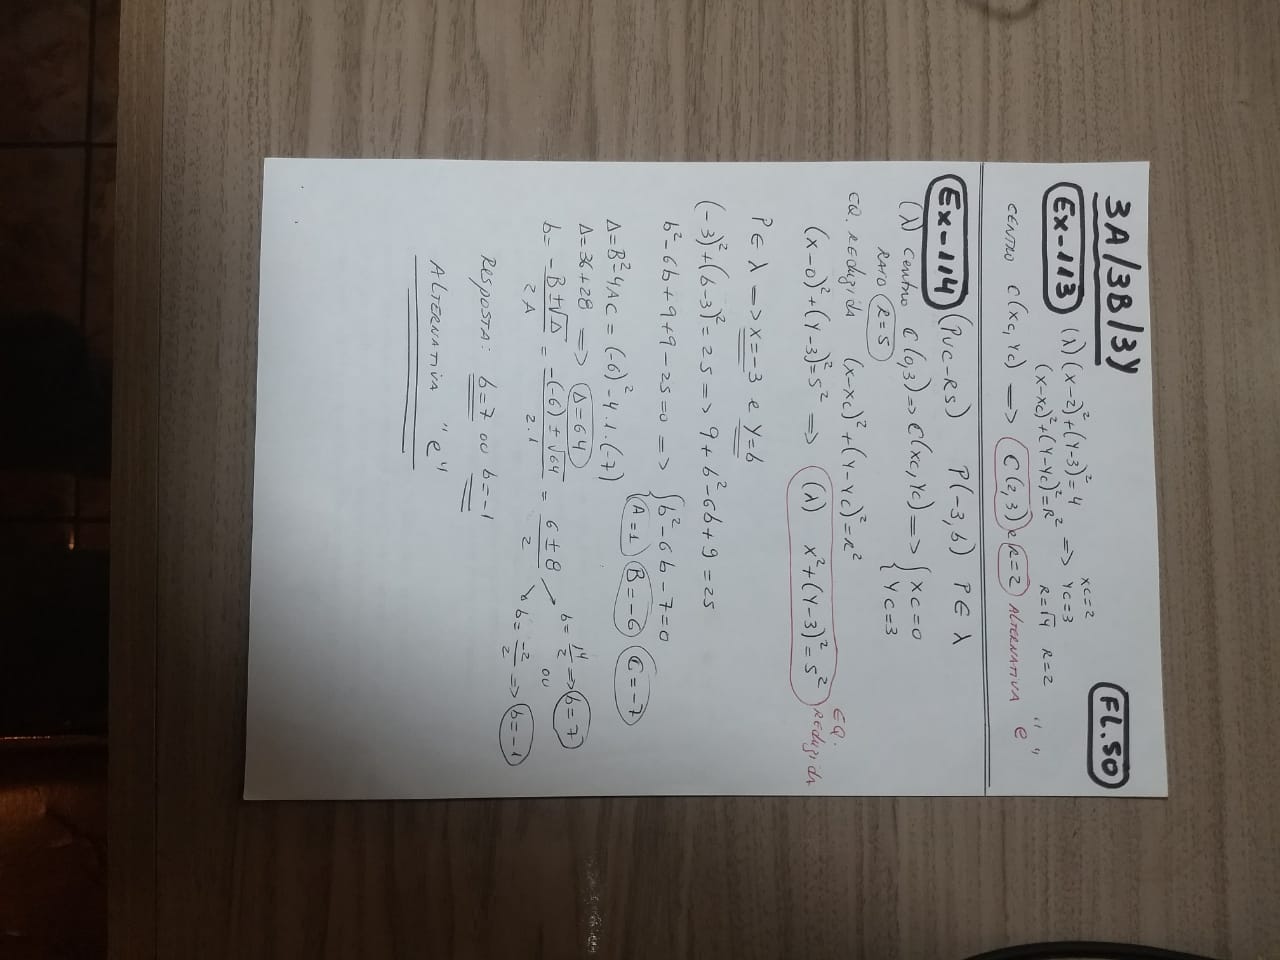 3A/3B/3Y
FL.50
Ex-113 (λ) (x-2)²+(Y-3)²=4 => xc=2
(x-xc)²+(Y-Yc)²=R² Yc=3
R=√4 R=2
CENTRO C(xc, Yc) => C(2,3) e R=2 ALTERNATIVA "e"
Ex-114 (PUC-RS) P(-3,b) P∈λ
(λ) centro C(0,3)=>C(xc,Yc)=> { xc=0
Yc=3
RAIO R=5
EQ. REduzidA (x-xc)²+(Y-Yc)²=R²
(x-0)²+(Y-3)²=5² => (λ) x²+(Y-3)²=5² EQ. REduzidA
P∈λ => x=-3 e Y=b
(-3)²+(b-3)²=25 => 9+b²-6b+9=25
b²-6b+9+9-25=0 => { b²-6b-7=0
A=1 B=-6 C=-7
Δ=B²-4AC=(-6)²-4.1.(-7)
Δ=36+28 => Δ=64
b= -B±√Δ / 2A = -(-6)±√64 / 2.1 = 6±8 / 2 b= 14/2 => b=7
ou
b= -2/2 => b=-1
RESPOSTA: b=7 ou b=-1
ALTERNATIVA "e"